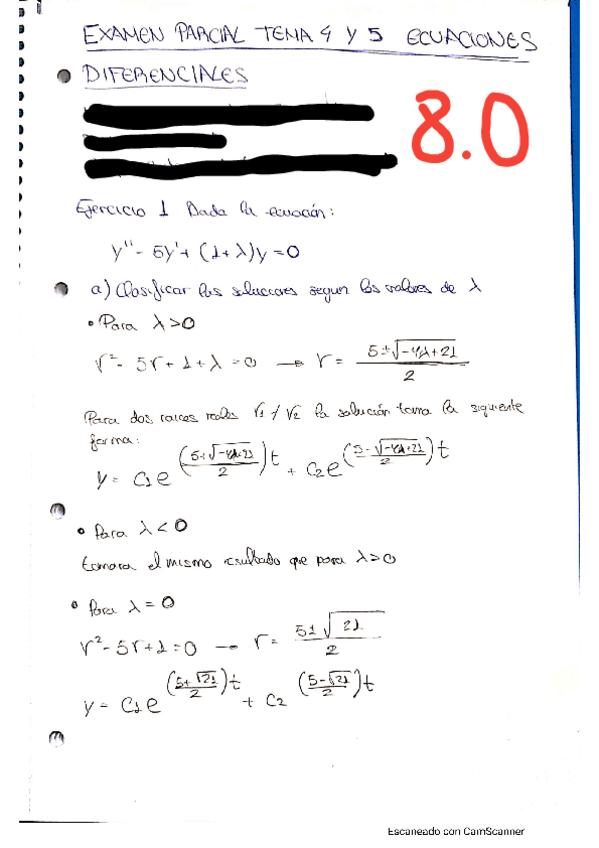 EXAMEN PARCIAL TEMA 4 Y 5 ECUACIONES
DIFERENCIALES
8.0
Ejercicio 1 Dada la ecuación:
y'' - 5y' + (1+λ)y = 0
a) Clasificar las soluciones segun los valores de λ
• Para λ>0
r² - 5r + 1 + λ = 0 → r = (5 ± √(-4λ+21)) / 2
Para dos raices reales r1 ≠ r2 la solución toma la siguiente
forma:
y = C1e^((5+√(-4λ+21))/2)t + C2e^((5-√(-4λ+21))/2)t
• Para λ < 0
tomara el mismo resultado que para λ>0
• Para λ = 0
r² - 5r + 1 = 0 → r = (5±√21) / 2
y = C1e^((5+√21)/2)t + C2^((5-√21)/2)t
Escaneado con CamScanner